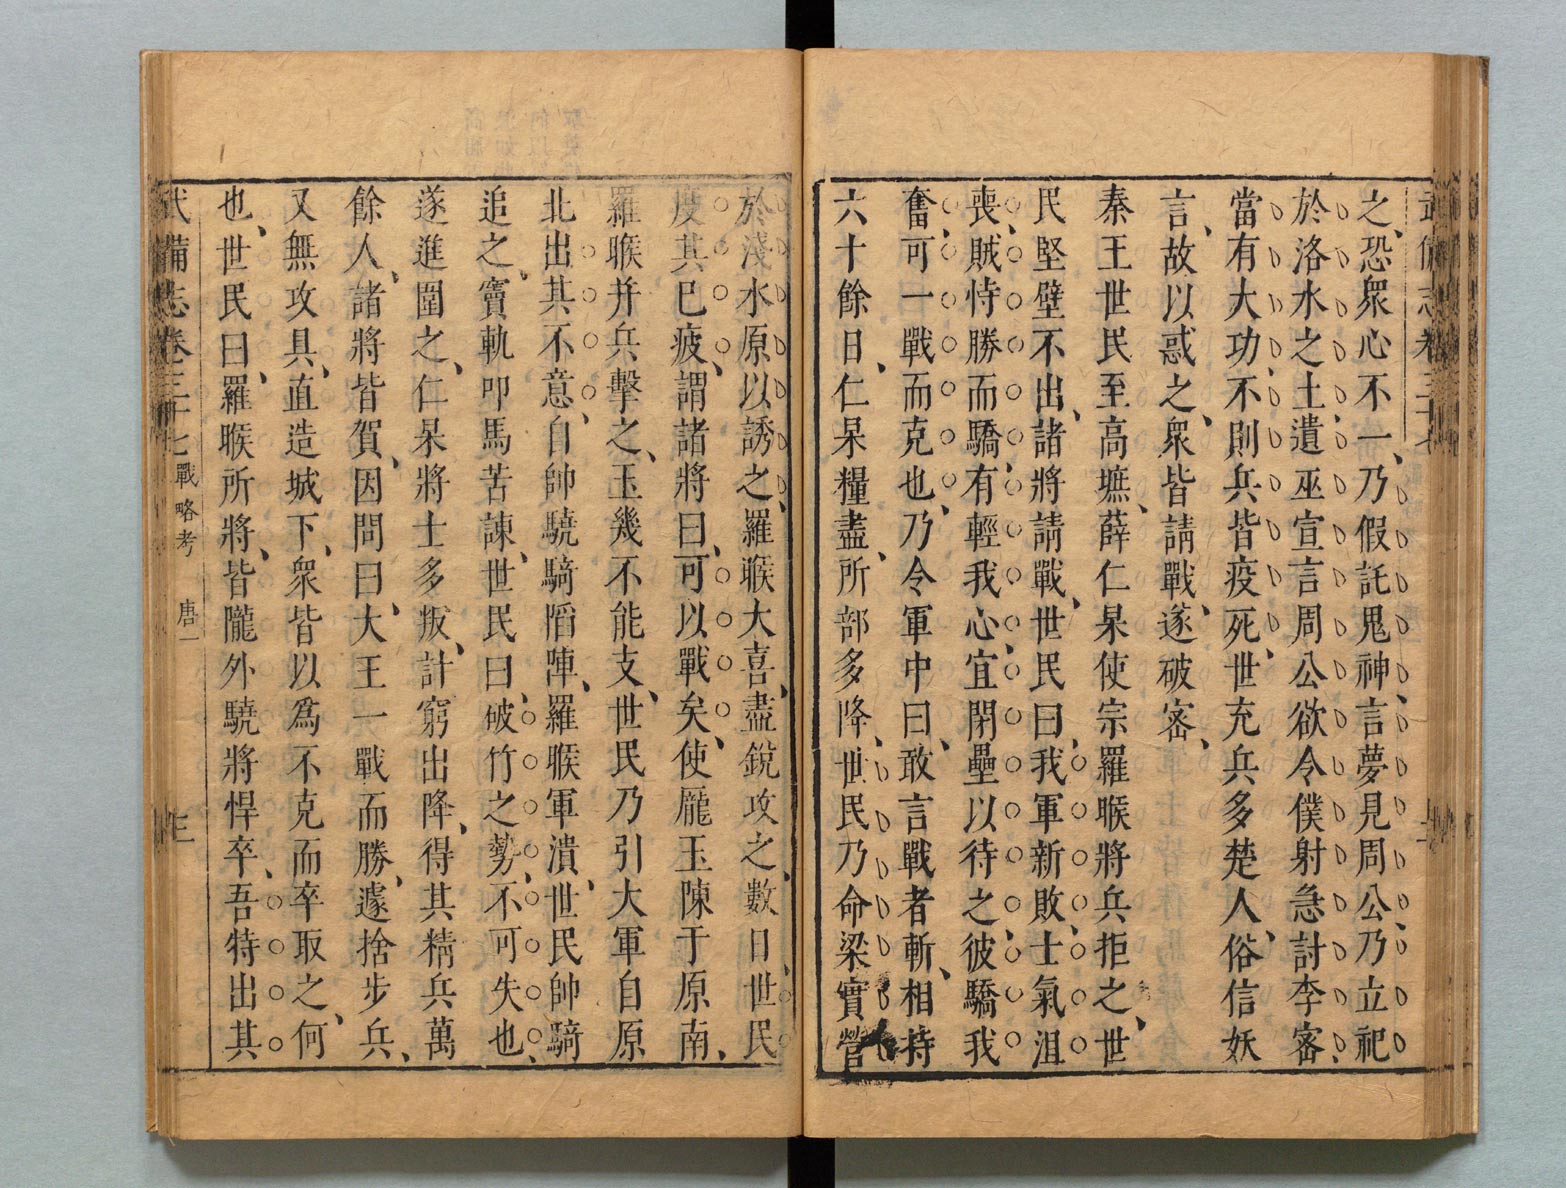 武備志卷三十七
之、恐衆心不一、乃假託鬼神、言夢見周公、乃立祀
於洛水之上、遣巫宣言周公欲令僕射急討李密、
當有大功、不則兵皆疫死、世充兵多楚人、俗信妖
言、故以惑之、衆皆請戰、遂破密、
秦王世民至高墌、薛仁杲使宗羅睺將兵拒之、世
民堅壁不出、諸將請戰、世民曰、我軍新敗、士氣沮
喪、賊恃勝而驕、有輕我心、宜閉壘以待之、彼驕我
奮、可一戰而克也、乃令軍中曰、敢言戰者斬、相持
六十餘日、仁杲糧盡、所部多降、世民乃命梁實營
於淺水原以誘之、羅睺大喜、盡銳攻之、數日、世民
度其已疲、謂諸將曰、可以戰矣、使龐玉陳于原南、
羅睺并兵擊之、玉幾不能支、世民乃引大軍自原
北出其不意、自帥驍騎陷陣、羅睺軍潰、世民帥騎
追之、竇軌叩馬苦諫、世民曰、破竹之勢、不可失也、
遂進圍之、仁杲將士多叛、計窮出降、得其精兵萬
餘人、諸將皆賀、因問曰、大王一戰而勝、遽捨步兵、
又無攻具、直造城下、衆皆以爲不克而卒取之、何
也、世民曰、羅睺所將、皆隴外驍將悍卒、吾特出其
武備志卷三十七 戰略考 唐一